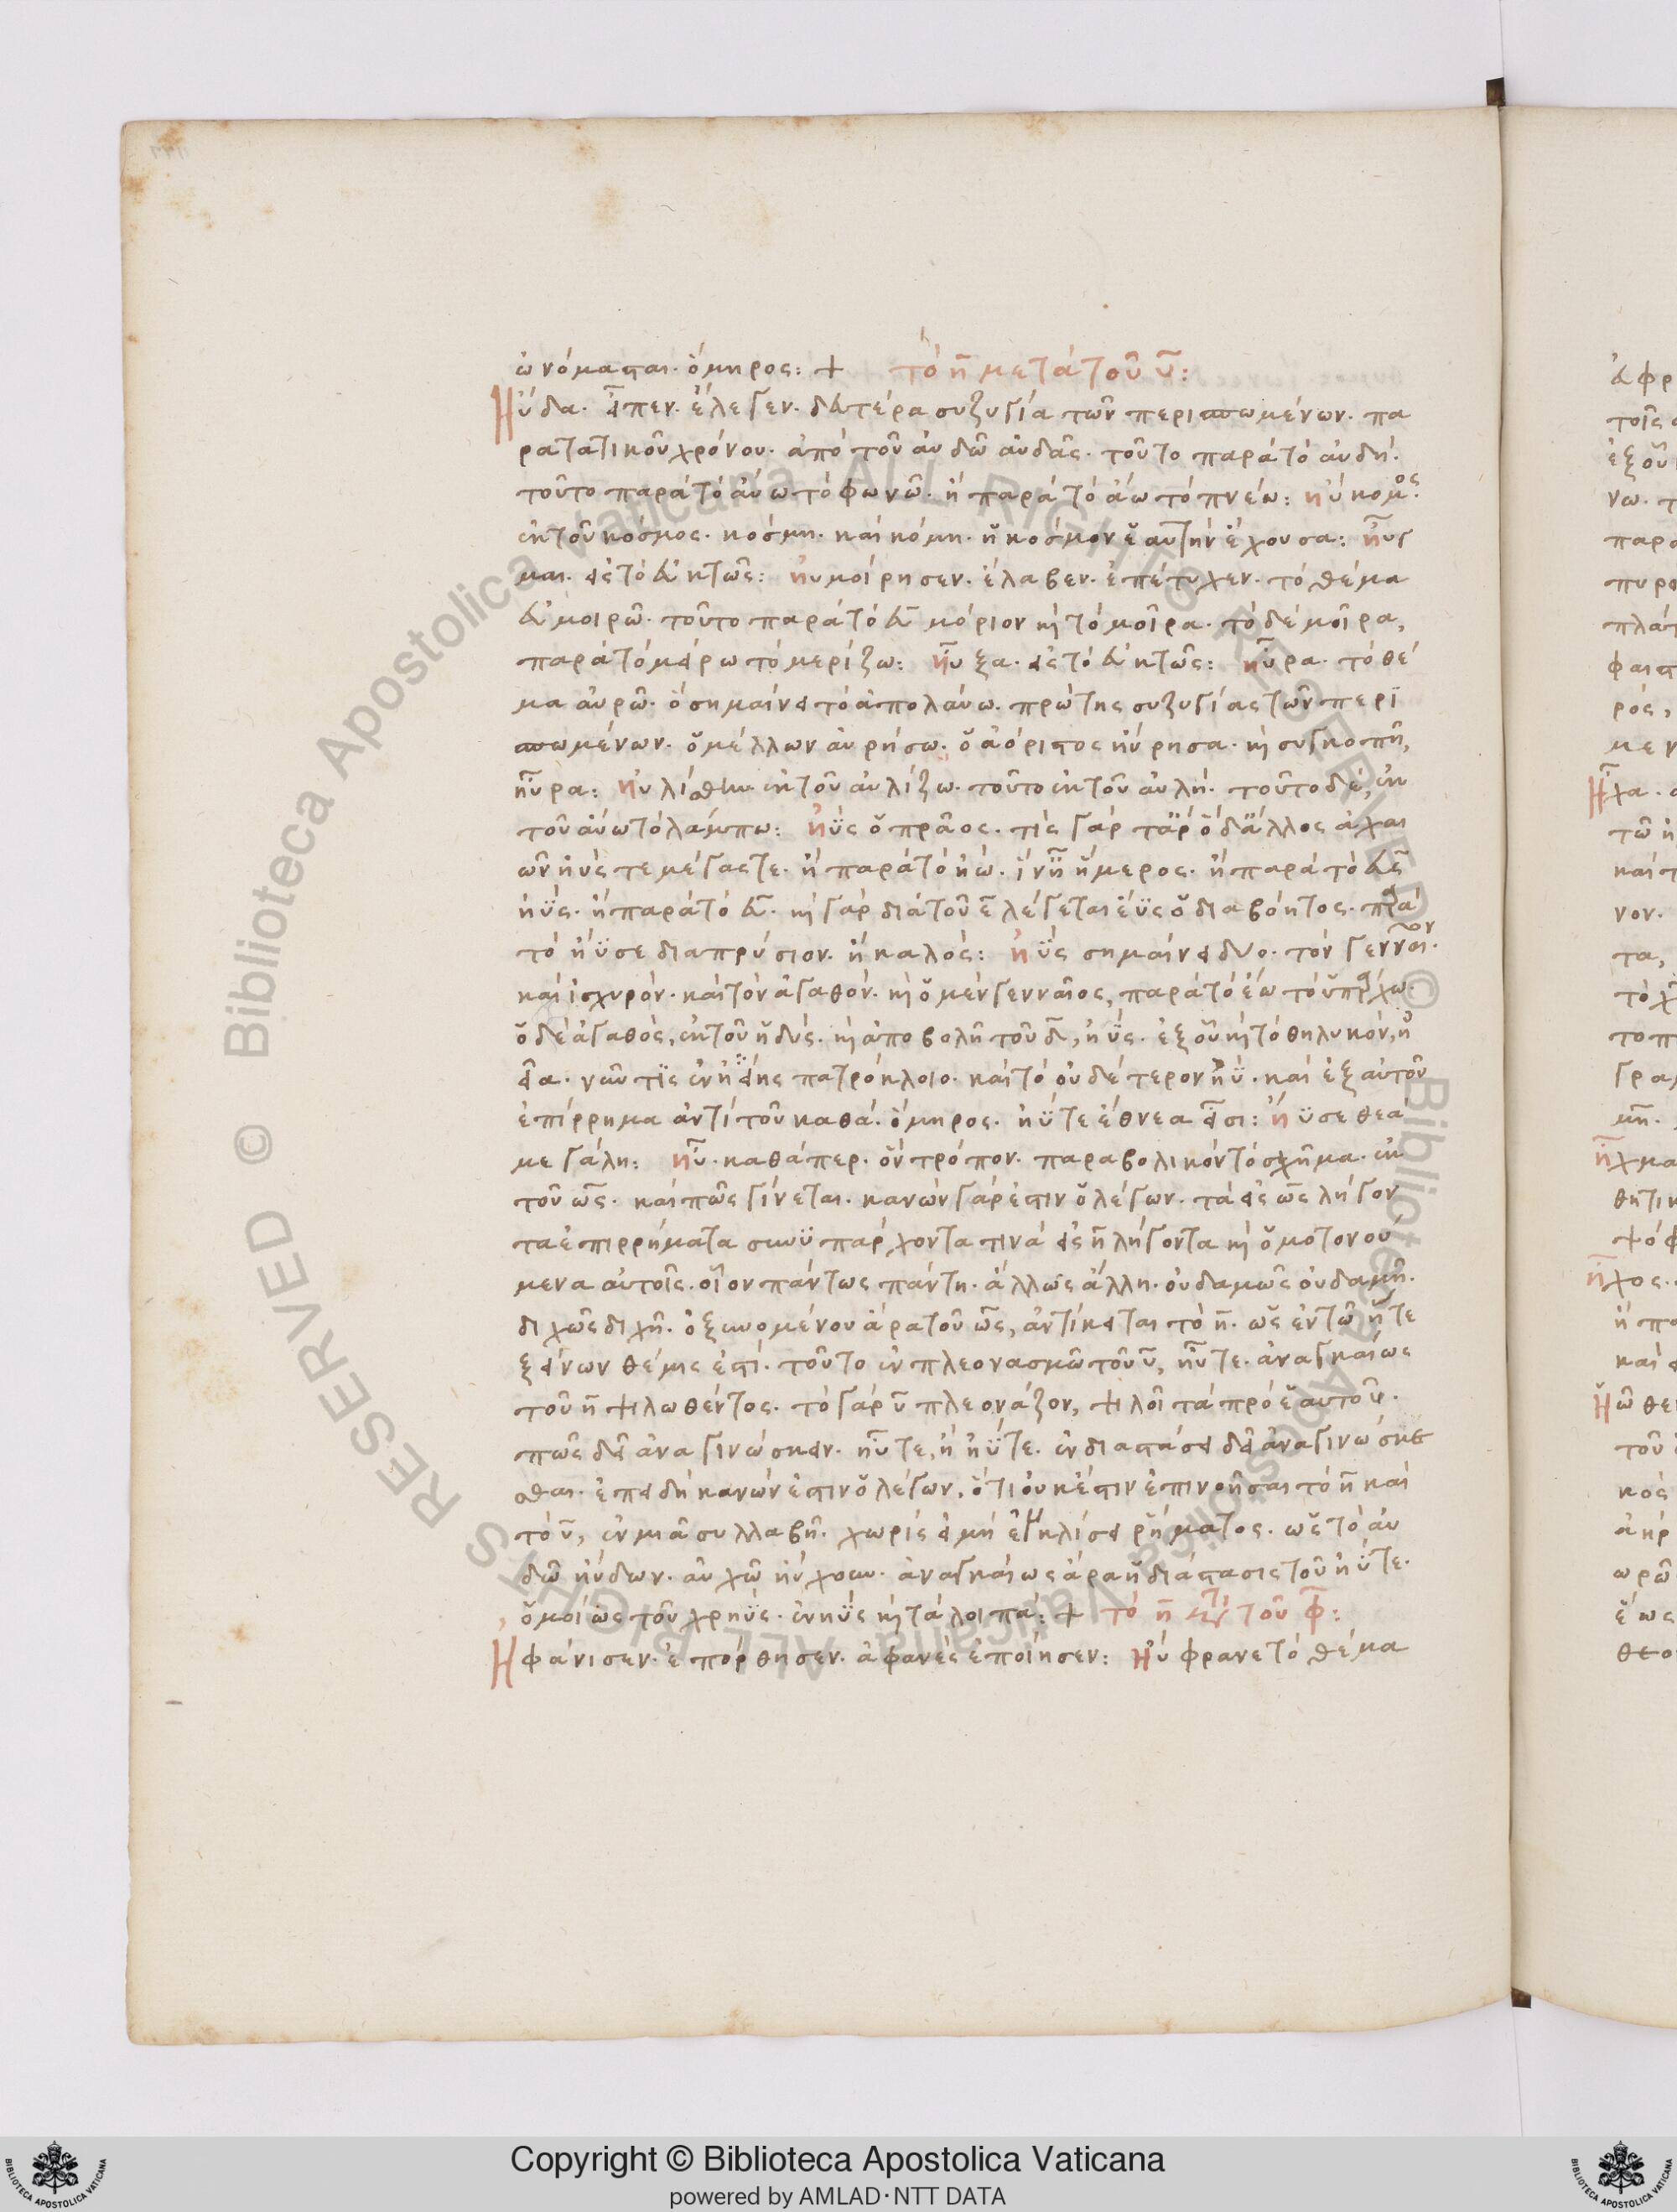 ὠνόμασται. ὅμηρος: + τὸ η μετὰ τοῦ υ:
Ηὔδα. εἶπεν. ἔλεγεν. δευτέρα συζυγία τῶν περισπωμένων. πα
ρατατικοῦ χρόνου. ἀπὸ τοῦ αὐδῶ αὐδᾶς. τοῦτο παρὰ τὸ αὐδή.
τοῦτο παρὰ τὸ αὔω τὸ φωνῶ. ἢ παρὰ τὸ ἄω τὸ πνέω: ηὔκομος.
ἐκ τοῦ κόσμος. κόσμη. καὶ κόμη. ἡ κόσμον ἑαυτὴν ἔχουσα: ηὖγ
μαι. εἰς τὸ εὐκτῶς: ηὐμοίρησεν. ἔλαβεν. ἐπέτυχεν. τὸ θέμα
εὐμοιρῶ. τοῦτο παρὰ τὸ εὖ μόριον καὶ τὸ μοῖρα. τὸ δὲ μοῖρα,
παρὰ τὸ μείρω τὸ μερίζω: ηὖξα. εἰς τὸ εὐκτῶς: ηὖρα. τὸ θέ
μα αὐρῶ. ὃ σημαίνει τὸ ἀπολαύω. πρώτης συζυγίας τῶν περι
σπωμένων. ὁ μέλλων αὐρήσω. ὁ ἀόριστος ηὔρησα. καὶ συγκοπῇ,
ηὖρα: ηὐλίσθην ἐκ τοῦ αὐλίζω. τοῦτο ἐκ τοῦ αὐλή. τοῦτο δὲ, ἐκ
τοῦ αὔω τὸ λάμπω: ἠῢς ὁ πρᾶος. τίς γὰρ τὰρ ὅδ' ἄλλος ἀχαι
ῶν ἠύς τε μέγας τε. ἢ παρὰ τὸ ἠῶ. ἵν' ᾖ ἥμερος. ἢ παρὰ τὸ εὖς
ἠῢς. ἢ παρὰ τὸ εὖ. καὶ γὰρ διὰ τοῦ ε λέγεται ἐῢς ὁ διαβόητος. παρὰ
τὸ ἤϋσε διαπρύσιον. ἢ καλός: ἠῢς σημαίνει δύο. τὸν γενναῖον.
καὶ ἰσχυρόν. καὶ τὸν ἀγαθόν. καὶ ὁ μὲν γενναῖος, παρὰ τὸ ἔω τὸ ὑπάρχω.
ὁ δὲ ἀγαθὸς, ἐκ τοῦ ἡδύς. καὶ ἀποβολῇ τοῦ δ, ἠῢς. ἐξ οὗ καὶ τὸ θηλυκόν, ἠ
εῖα. νῦν τις ἐνηείης πατρόκλοιο. καὶ τὸ οὐδέτερον ἠῢ. καὶ ἐξ αὐτοῦ
ἐπίρρημα ἀντὶ τοῦ καθά. ὅμηρος. ἠΰτε ἔθνεα εἶσι: ἤϋσε θεὰ
μεγάλη: ηὖ. καθάπερ. ὃν τρόπον. παραβολικὸν τὸ σχῆμα. ἐκ
τοῦ ὡς. καὶ πῶς γίνεται. κανὼν γάρ ἐστιν ὁ λέγων. τὰ εἰς ως λήγον
τα ἐπιρρήματα συνϋπάρχοντα τινὰ εἰς η λήγοντα καὶ ὁμοτονού
μενα αὐτοῖς. οἷον πάντως πάντη. ἄλλως ἄλλη. οὐδαμῶς οὐδαμῆ.
διχῶς διχῆ. ὀξυνομένου ἄρα τοῦ ὡς, ἀντίκειται τὸ η. ὡς ἐν τῷ ἥ τε
ξείνων θέμις ἐστί. τοῦτο ἐν πλεονασμῷ τοῦ υ, ηὖτε. ἀναγκαίως
τοῦ η ψιλωθέντος. τὸ γὰρ υ πλεονάζον, ψιλοῖ τὰ πρὸ ἑαυτοῦ.
πῶς δεῖ ἀναγινώσκειν. ηὖτε, ἢ ἠΰτε. ἐν διαστάσει δεῖ ἀναγινώσκε
σθαι. ἐπειδὴ κανών ἐστιν ὁ λέγων. ὅτι οὐκ ἔστιν ἐπινοῆσαι τὸ η καὶ
τὸ υ, ἐν μιᾷ συλλαβῇ. χωρὶς εἰ μὴ ἐγκλίσει ῥήματος. ὡς τὸ αὐ
δῶ ηὔδων. αὐχῶ ηὔχουν. ἀναγκαίως ἄρα ἡ διάστασις τοῦ ἠΰτε.
ὁμοίως τοῦ χρηῢς. ἐνηῢς καὶ τὰ λοιπά: + τὸ η μετὰ τοῦ φ:
Ηφάνισεν. ἐπόρθησεν. ἀφανὲς ἐποίησεν: Ηὔφρανε τὸ θέμα
Copyright © Biblioteca Apostolica Vaticana
powered by AMLAD･NTT DATA